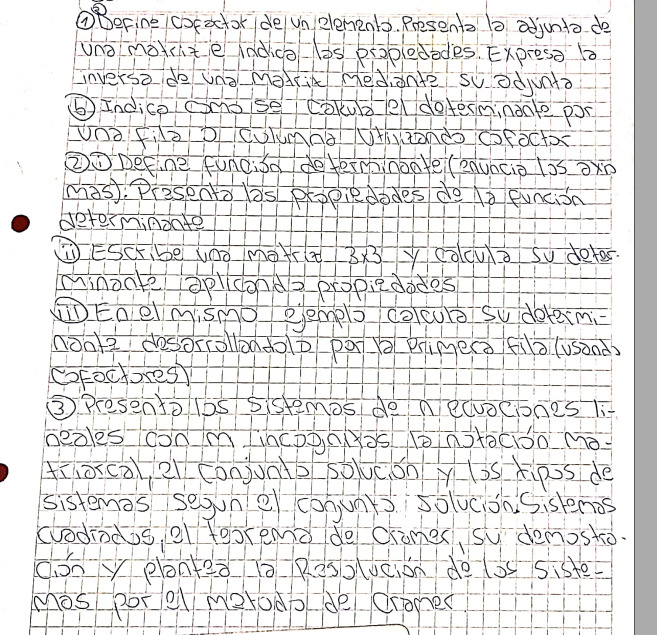 ① ⓐ Define cofactor de un elemento. Presenta la adjunta de
una matriz e indica las propiedades. Expresa la
inversa de una matriz mediante su adjunta
ⓑ Indica como se calcula el determinante por
una fila o columna utilizando cofactor
② ⓘ Define función determinante (enuncia los axio
mas). Presenta las propiedades de la función
determinante
ⓘⓘ Escribe una matriz 3x3 y calcula su deter-
minante aplicando propiedades
ⓘⓘⓘ En el mismo ejemplo calcula su determi-
nante desarrollandolo por la primera fila (usando
cofactores)
③ Presenta los sistemas de n ecuaciones li-
neales con m incognitas la notación ma-
triarcal, el conjunto solución y los tipos de
sistemas segun el conjunto solución. Sistemas
cuadrados, el teorema de Cramer, su demostra-
ción y plantea la Resolución de los siste-
mas por el metodo de Cramer